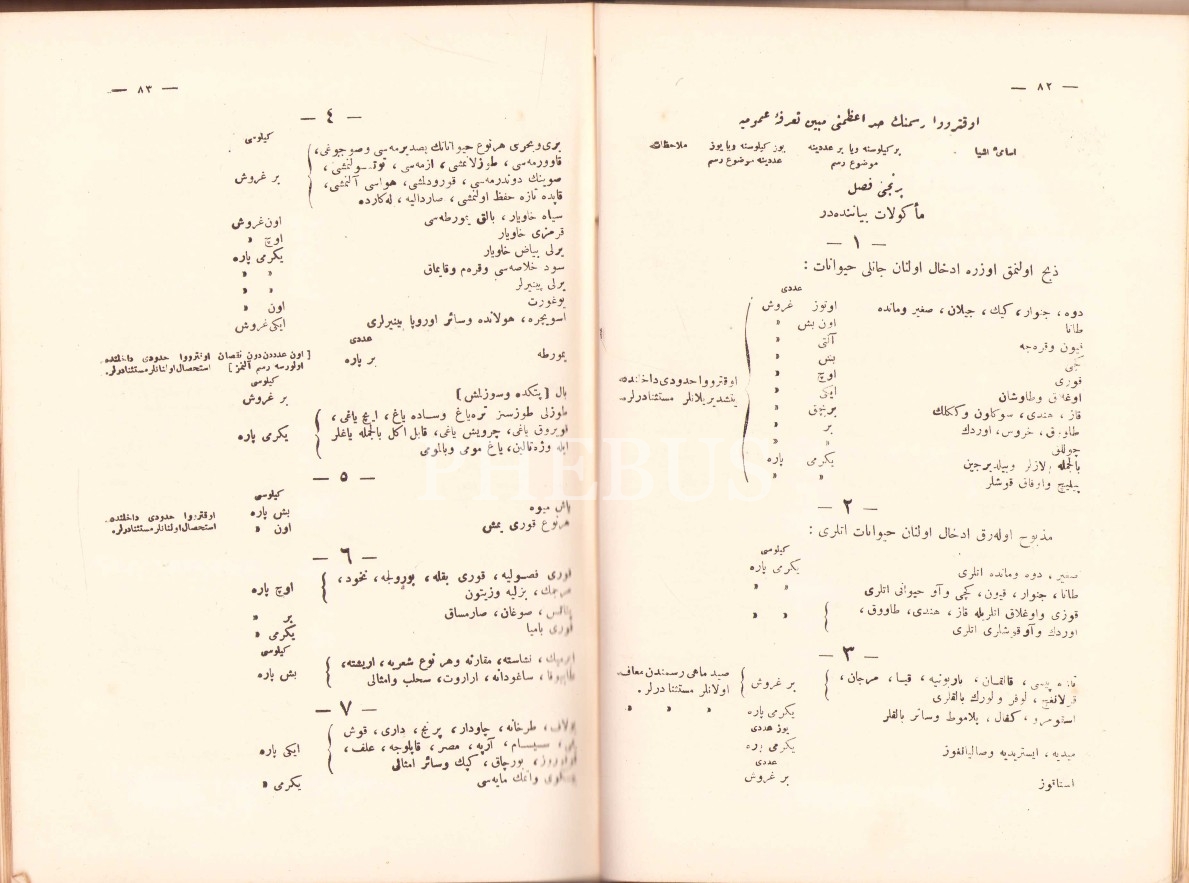 — ٨٢ —
اوقتروا رسمنك حد اعظمنی مبین تعرفهٔ عمومیه
اسامیٔ اشیا
بر کیلوسنه ویا بر عددینه موضوع رسم
یوز کیلوسنه ویا یوز عددینه موضوع رسم
ملاحظات
برنجی فصل
مأکولات بیاننده‌در
— ١ —
ذبح اولنمق اوزره ادخال اولنان جانلی حیوانات :
عددی
دوه ، جنوار ، کیك ، جیلان ، صغیر ومانده اوتوز غروش
طانا اون بش »
قیون وقره‌جه آلتی »
کچی بش »
قوزی اوچ »
اوغلاق وطاوشان ایکی »
قاز ، هندی ، سوکلون وککلك بر بچق »
طاوق ، خروس ، اوردك بر »
چوللق » »
بالجمله پلازلر وبیلدیرجین یکرمی پاره
پیلیچ واوفاق قوشلر » »
اوقتروا حدودی داخلنده
یتشدیریلانلر مستثنادرلر.
— ٢ —
مذبوح اوله‌رق ادخال اولنان حیوانات اتلری :
کیلوسی
صغیر ، دوه ومانده اتلری یکرمی پاره
طانا ، جنوار ، قیون ، کچی وآو حیوانی اتلری » »
قوزی واوغلاق اتلریله قاز ، هندی ، طاووق ، » »
اوردك وآو قوشلری اتلری
— ٣ —
تازه پیسی ، قالقان ، باربونیه ، قیا ، مرجان ، بر غروش
قرلانغیچ ، لوفر ولورك بالقلری
صید ماهی رسمندن معاف
اولانلر مستثنادرلر .
اسقومرو ، کفال ، پلاموط وسائر بالقلر یکرمی پاره » » »
یوز عددی
میدیه ، ایستریدیه وصالیانغوز یکرمی پاره
عددی
استاقوز بر غروش
— ٨٣ —
— ٤ —
کیلوسی
بری وبحری هرنوع حیواناتك بصدیرمه‌سی وصوجوغی ،
قاوورمه‌سی ، طوزلانمشی ، ازمه‌سی ، توتسولنمشی ،
صوینك دوندرمه‌سی ، قورودلمشی ، هواسی آلنمشی ، بر غروش
قاپده تازه حفظ اولنمشی ، صاردالیه ، له‌کارده
سیاه خاویار ، بالق یمورطه‌سی اون غروش
قرمزی خاویار اوچ »
یرلی بیاض خاویار یکرمی پاره
سود خلاصه‌سی وقره‌م وقایماق » »
یرلی پینیرلر » »
یوغورت اون »
اسویچره ، هولانده وسائر اوروپا پینیرلری ایکی غروش
عددی
یمورطه بر پاره
[ اون عدددن دون نقصان اولورسه رسم آلنمز ]
اوقتروا حدودی داخلنده استحصال اولنانلر مستثنادرلر.
کیلوسی
بال ( پتکده وسوزلمش ) بر غروش
طوزلی طوزسز تره‌یاغ وساده یاغ ، ایچ یاغی ،
قویروق یاغی ، چرویش یاغی ، قابل اکل بالجمله یاغلر یکرمی پاره
ایله وژه‌تالین ، یاغ مومی وبالمومی
— ٥ —
کیلوسی
یاش میوه بش پاره
هرنوع قوری یمش اون »
اوقتروا حدودی داخلنده
استحصال اولنانلر مستثنادرلر.
— ٦ —
قوری فصولیه ، قوری بقله ، بورولجه ، نخود ،
مرجمك ، بزلیه وزیتون اوچ پاره
پتاتس ، صوغان ، صارمساق بر »
قوری بامیا یکرمی »
کیلوسی
ایرمیك ، نشاسته ، مقارنه وهر نوع شعریه ، اریشته ،
طاپیوقا ، ساغودانه ، اراروت ، سحلب وامثالی بش پاره
— ٧ —
یولاف ، طرخانه ، چاودار ، پرنج ، داری ، قوش
یمی ، سیسام ، آرپه ، مصر ، قاپلوجه ، علف ، ایکی پاره
بورچاق ، کپك وسائر امثالی
واتمك مایه‌سی یکرمی »
PHEBUS